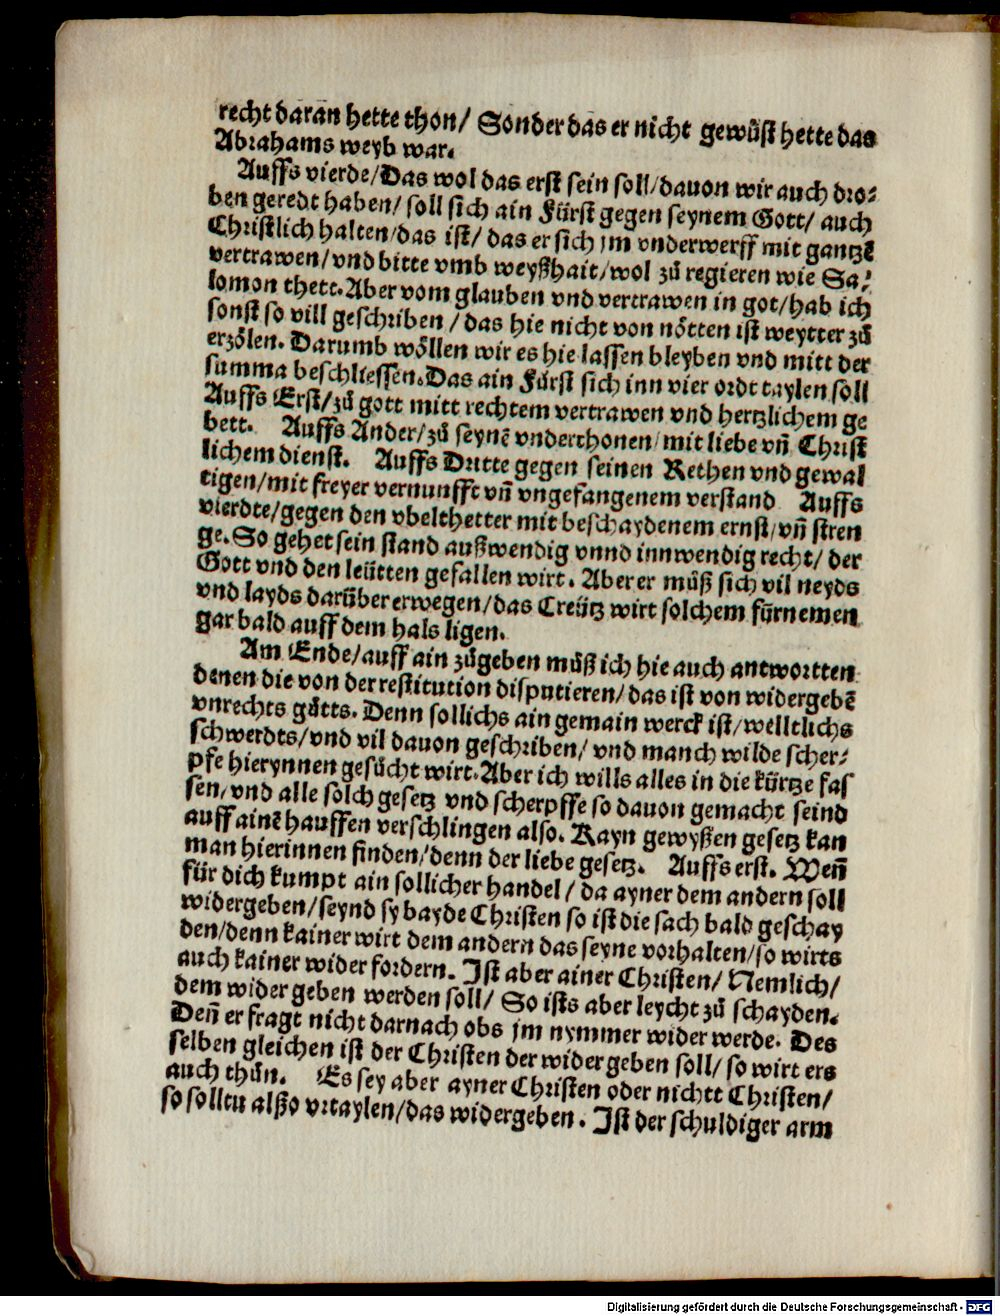 recht daran hette thon/ Sonder das er nicht gewüst hette das
Abrahams weyb war.
Auffs vierde/Das wol das erst sein soll/dauon wir auch dro⸗
ben geredt haben/ soll sich ain Fürst gegen seynem Gott/ auch
Christlich halten/das ist/ das er sich jm vnderwerff mit gantzē
vertrawen/vnd bitte vmb weyßhait/wol zů regieren wie Sa⸗
lomon thett. Aber vom glauben vnd vertrawen in got/hab ich
sonst so vill geschriben / das hie nicht von nötten ist weytter zů
erzölen. Darumb wöllen wir es hie lassen bleyben vnd mitt der
summa beschliessen. Das ain Fürst sich inn vier ordt taylen soll
Auffs Erst/zů gott mitt rechtem vertrawen vnd hertzlichem ge
bett. Auffs Ander/zů seynē vnderthonen/mit liebe vñ Christ
lichem dienst. Auffs Dritte gegen seinen Rethen vnd gewal
tigen/mit freyer vernunfft vñ vngefangenem verstand Auffs
vierdte/gegen den vbelthetter mit beschaydenem ernst/vñ stren
ge. So gehet sein stand außwendig vnnd innwendig recht/ der
Gott vnd den leütten gefallen wirt. Aber er můß sich vil neyds
vnd layds darüber erwegen/das Creütz wirt solchem fürnemen
gar bald auff dem hals ligen.
Am Ende/auff ain zůgeben můß ich hie auch antwortten
denen die von der restitution disputieren/das ist von widergebē
vnrechts gůtts. Denn sollichs ain gemain werck ist/welltlichs
schwerdts/vnd vil dauon geschriben/ vnd manch wilde scher⸗
pfe hierynnen gesůcht wirt. Aber ich wills alles in die kürtze fas
sen/vnd alle solch gesetz vnd scherpffe so dauon gemacht seind
auff ainē hauffen verschlingen also. Kayn gewyßen gesetz kan
man hierinnen finden/denn der liebe gesetz. Auffs erst. Weñ
für dich kumpt ain sollicher handel / da ayner dem andern soll
widergeben/seynd sy bayde Christen so ist die sach bald geschay
den/denn kainer wirt dem andern das seyne vorhalten/so wirts
auch kainer wider fordern. Ist aber ainer Christen/ Nemlich/
dem wider geben werden soll/ So ists aber leycht zů schayden.
Deñ er fragt nicht darnach obs jm nymmer wider werde. Des
selben gleichen ist der Christen der wider geben soll/ so wirt ers
auch thůn. Es sey aber ayner Christen oder nichtt Christen/
so solltu alßo vrtaylen/das widergeben. Ist der schuldiger arm
Digitalisierung gefördert durch die Deutsche Forschungsgemeinschaft - DFG